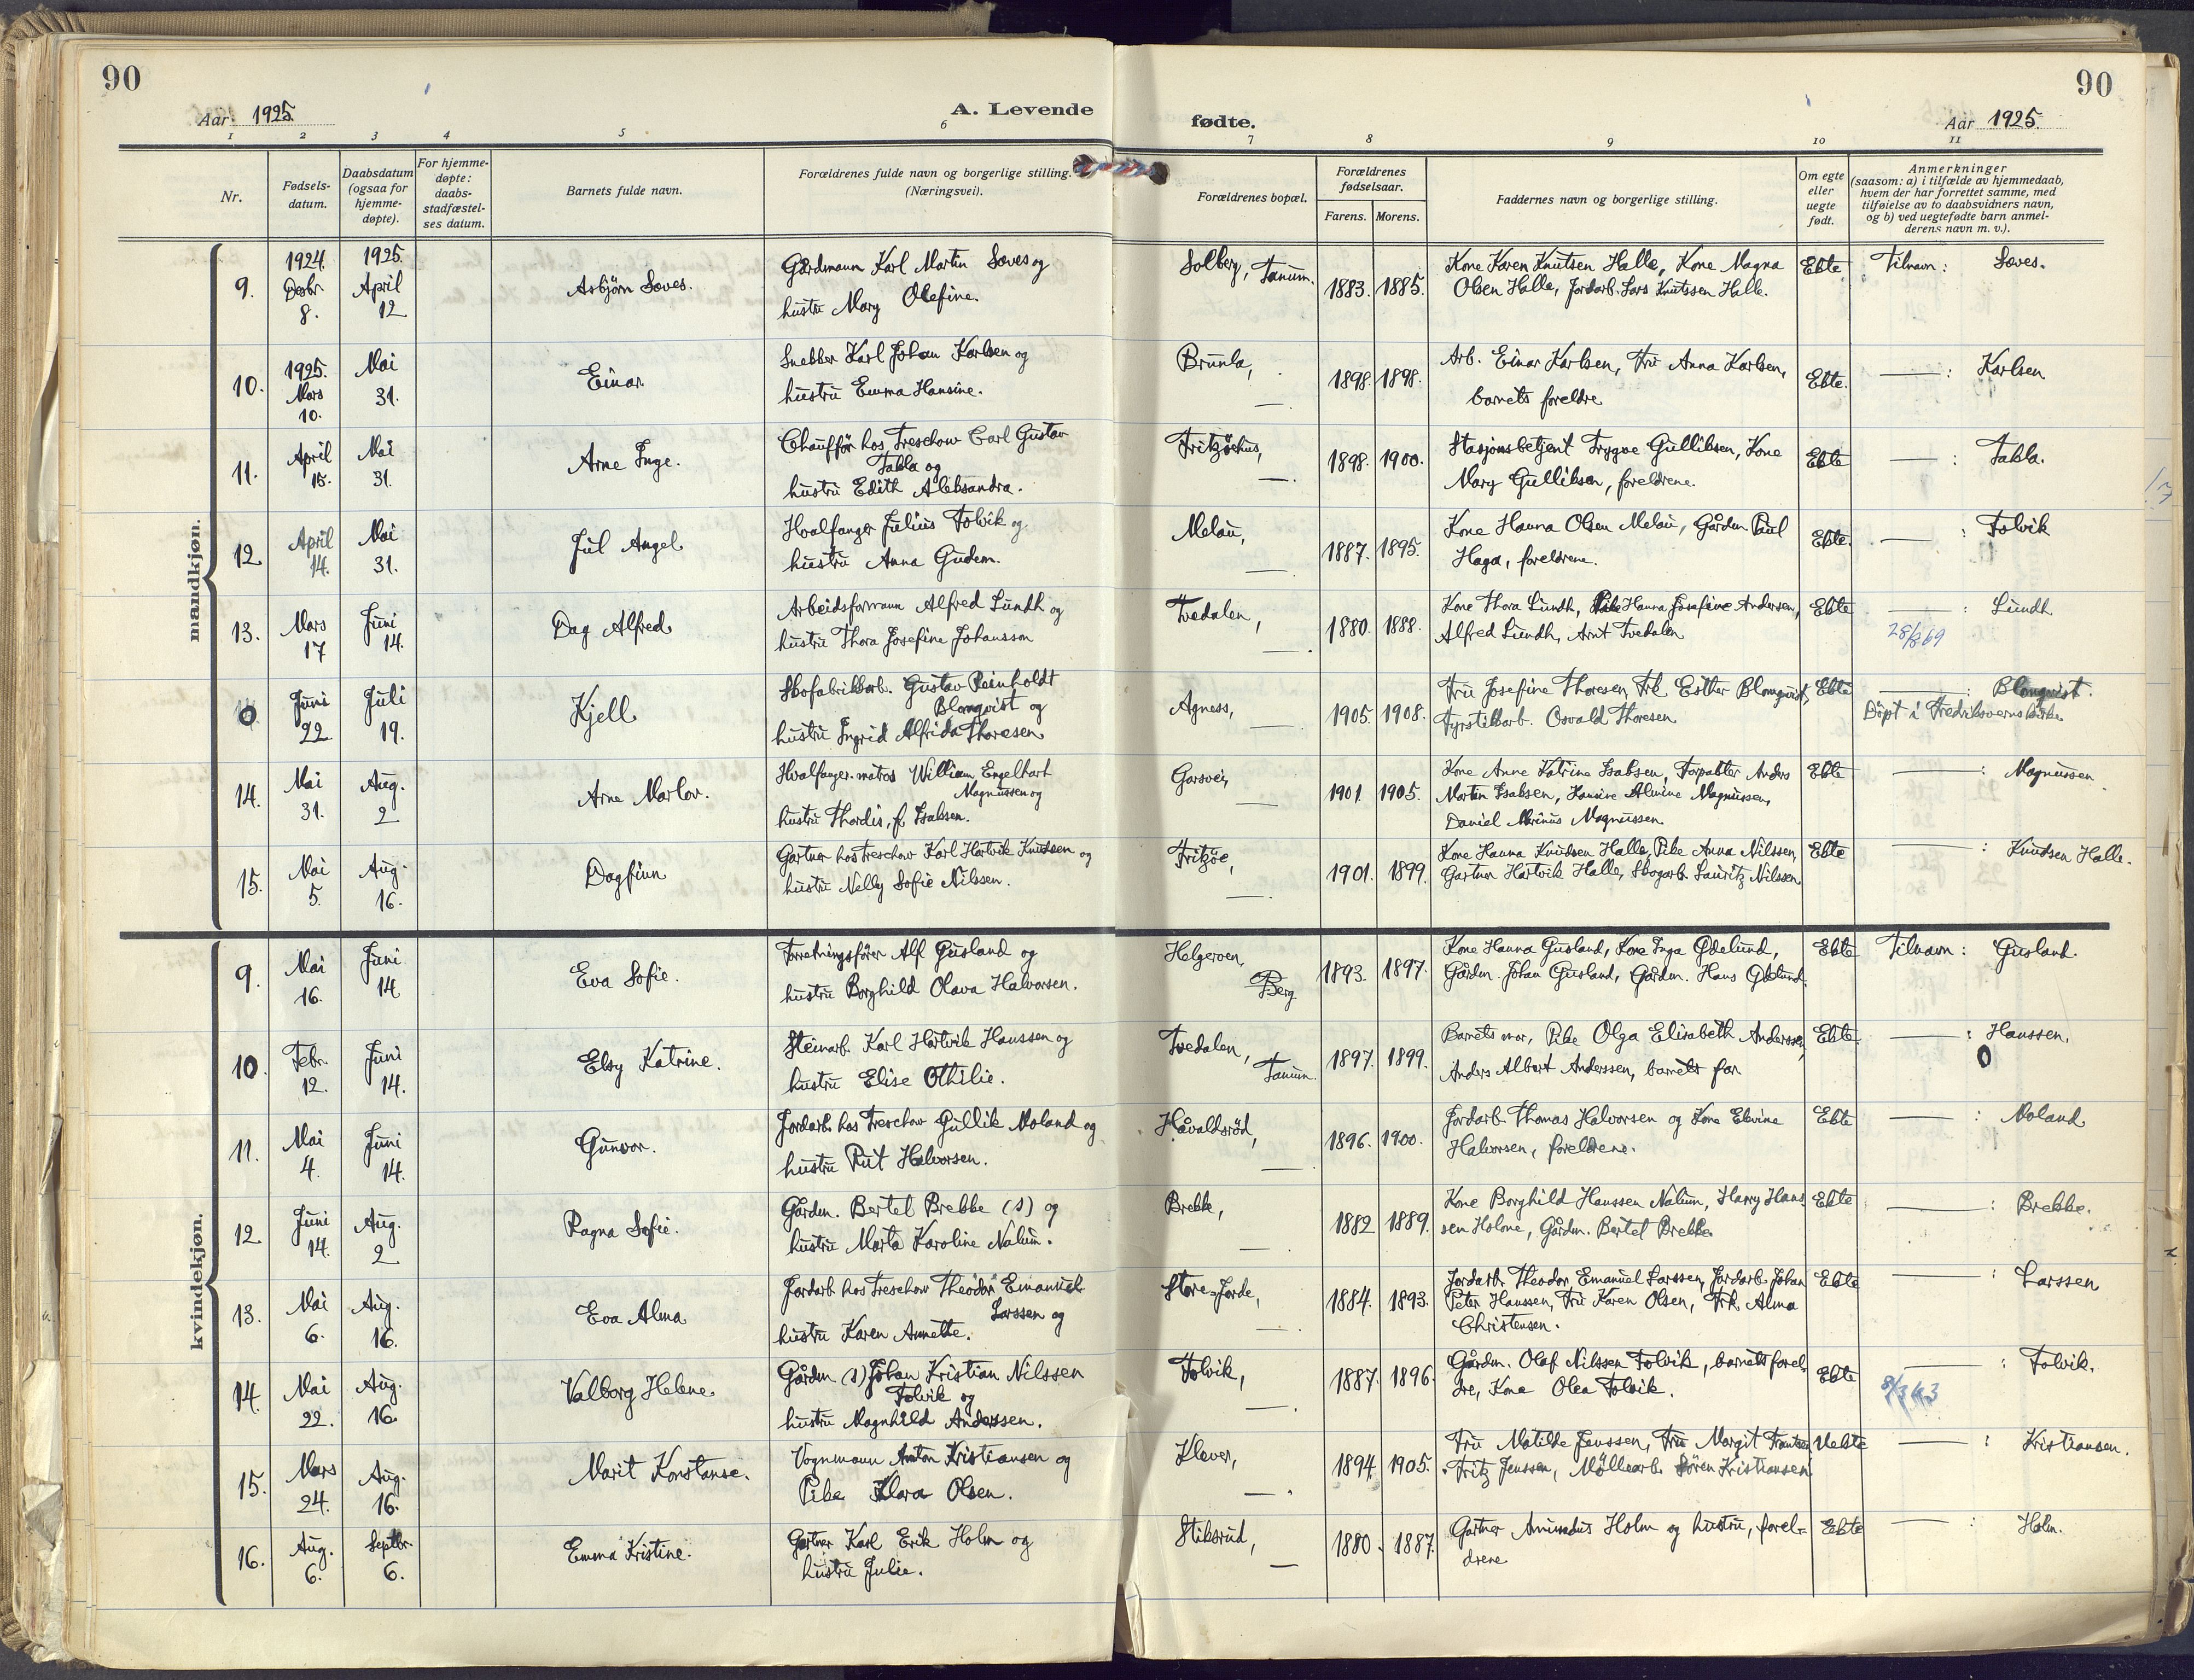 90
90
Aar 1925.
A. Levende
fødte.
Aar 1925.
1 2 3 4 5 6 7 8 9 10 11
Nr.
Fødsels-
datum.
Daabsdatum
(ogsaa for
hjemme-
døpte).
For hjemme-
døpte:
daabs-
stadfæstel-
ses datum.
Barnets fulde navn.
Forældrenes fulde navn og borgerlige stilling.
(Næringsvei).
Forældrenes bopæl.
Forældrenes
fødselsaar.
Farens. Morens.
Faddernes navn og borgerlige stilling.
Om egte
eller
uegte
født.
Anmerkninger
(saasom: a) i tilfælde av hjemmedaab,
hvem der har forrettet samme, med
tilføielse av to daabsvidners navn,
og b) ved uegtefødte barn anmel-
derens navn m. v.).
mandkjøn.
9. 1924. Desbr. 8. 1925. April 12 Asbjörn Soves.
Gårdmann Karl Martin Soves og
hustru Mary Olefine.
Solberg, Tanum. 1883. 1885.
Kone Karen Knutsen Halle, Kone Magna
Olsen Halle, Jordarb. Lars Knutssen Halle.
Ekte Tilnavn: Soves.
10. 1925. Mars 10. Mai 31. Einar.
Snekker Karl Johan Karlsen og
hustru Emma Hansine.
Brunla, — 1898. 1898.
Arb. Einar Karlsen, Fru Anna Karlsen,
barnets foreldre
Ekte. — : Karlsen
11. April 15. Mai 31. Arne Inge.
Chaufför hos Treschow Carl Gustav
Takla og
hustru Edith Aleksandra.
Fritzöehus, — 1898. 1900.
Stasjonsbetjent Trygve Gulliksen, Kone
Mary Gulliksen, foreldrene.
Ekte — : Takla.
12. April 14. Mai 31. Jul Angel
Hvalfanger Julius Tolvik og
hustru Anna Gudem.
Melau, — 1887. 1895.
Kone Hanna Olsen Melau, Gårdm. Paul
Haga, foreldrene.
Ekte. — : Tolvik
13. Mars 17 Juni 14. Dag Alfred
Arbeidsformann Alfred Lundh og
hustru Thora Josefine Johansson
Tvedalen, — 1880. 1888.
Kone Thora Lundh, Pike Hanna Josefine Andersen,
Alfred Lundh, Arnt Tvedalen
Ekte — : Lundh
28/8 69
0 Juni 22 Juli 19. Kjell
Skofabrikkarb. Gustav Reinholdt
Blomqvist og
hustru Ingrid Alfrida Thoresen
Agness, 1905. 1908.
Fru Josefine Thoresen, Frk Esther Blomquist,
Fyrstikkarb. Osvald Thoresen
Ekte — : Blomqvist.
Döpt i Fredriksverns kirke.
14. Mai 31. Aug. 2 Arne Marlov.
Hvalfanger-matros William Engelhart
Magnussen og
hustru Thordis, f. Isaksen.
Gorsvei, — 1901. 1905.
Kone Anne Katrine Isaksen, Forpakter Anders
Martin Isaksen, Hansine Alvine Magnussen,
Daniel Marinus Magnussen
Ekte — : Magnussen
15. Mai 5. Aug. 16. Dagfinn
Gartner hos Treschow Karl Hartvik Knutsen og
hustru Nelly Sofie Nilssen.
Fritzöe, — 1901. 1899.
Kone Hanna Knudsen Halle, Pike Anna Nilssen,
Gartner Hartvik Halle, Skogarb. Lauritz Nilssen
Ekte — : Knudsen Halle.
kvindekjøn.
9. Mai 16. Juni 14 Eva Sofie.
Forretningsförer Alf Gusland og
hustru Borghild Olava Halvorsen.
Helgeroen, Berg 1893. 1897.
Kone Hanna Gusland, Kone Inga Ødelund,
Gårdm. Johan Gusland, Gårdm. Hans Ødelund.
Ekte Tilnavn: Gusland.
10. Febr. 12. Juni 14. Elsy Katrine.
Steinarb. Karl Hartvik Hanssen og
hustru Elise Othilie.
Tvedalen, Tanum. 1897. 1899.
Barnets mor, Pike Olga Elisabeth Anderssen,
Anders Albert Anderssen, barnets far
Ekte — : Hanssen.
0
11. Mai 4. Juni 14. Gunvor.
Jordarb. hos Treschow Gullik Moland og
hustru Rut Halvorsen.
Håvaldsröd, — 1896. 1900.
Jordarb. Thomas Halvorsen og Kone Elevine
Halvorsen, foreldrene.
Ekte — : Moland
12 Juni 14. Aug. 2 Ragna Sofie.
Gårdm. Bertel Brekke (s) og
hustru Marta Karoline Nalum.
Brekke, — 1882 1889.
Kone Borghild Hanssen Nalum, Harry Hans-
sen Holone, Gårdm. Bertel Brekke
Ekte — : Brekke.
13. Mai 6. Aug. 16. Eva Alma
Jordarb. hos Treschow Theodor Emanuel
Larssen og
hustru Karen Annette.
Store-Jorde, — 1884. 1893.
Jordarb. Theodor Emanuel Larssen, Jordarb. Johan
Peter Hanssen, Fru Karen Olsen, Frk Alma
Christensen.
Ekte — : Larssen
14. Mai 22. Aug. 16. Valborg Helene.
Gårdm (s) Johan Kristian Nilssen
Tolvik og
hustru Magnhild Anderssen.
Tolvik, — 1887. 1896.
Gårdm. Olaf Nilssen Tolvik, barnets forel-
dre, Kone Olea Tolvik.
Ekte — : Tolvik.
8/3 43
15. Mars 24. Aug. 16. Marit Konstanse.
Vognmann Anton Kristiansen og
Pike Klara Olsen.
Klever, — 1894 1905.
Fru Matilde Jenssen, Fru Margit Frantzen
Fritz Jenssen, Möllearb. Sören Kristiansen
Uekte — : Kristiansen.
16. Aug. 6. Septbr. 6. Emma Kristine.
Gartner Karl Erik Holm og
hustru Julie.
Stiksrud, — 1880. 1887
Gartner Amundus Holm og hustru, forel-
drene
Ekte — : Holm.